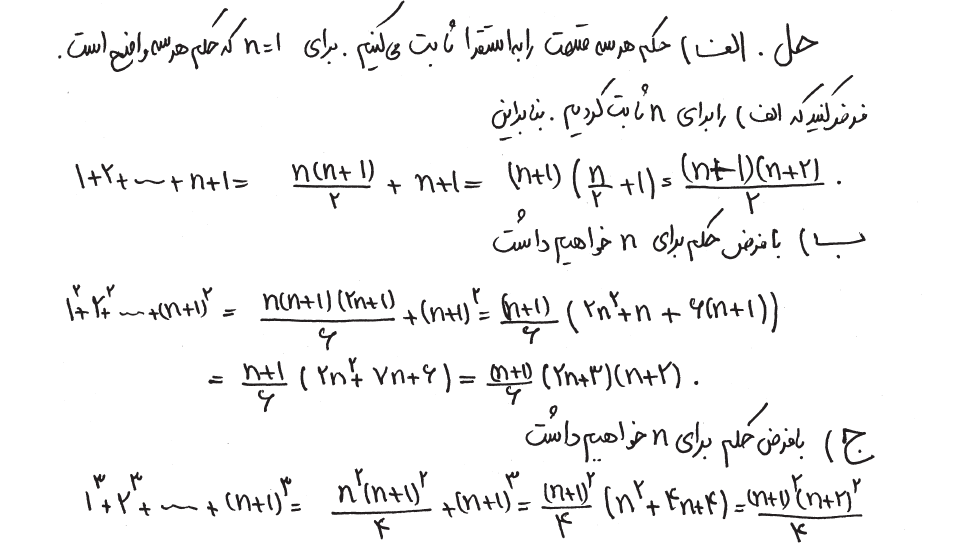 حل. الف) حکم هر سه قسمت را به استقرا ثابت می‌کنیم. برای n=1 که حکم هر سه واضح است.
فرض کنید که الف) را برای n ثابت کردیم. بنابراین
1+۲+⋯+n+1= n(n+1)/۲ + n+1= (n+1)(n/۲ +1)= (n+1)(n+۲)/۲ .
ب) با فرض حکم برای n خواهیم داشت
1^۲+۲^۲+⋯+(n+1)^۲ = n(n+1)(۲n+1)/۶ +(n+1)^۲ = (n+1)/۶ (۲n^۲+n + ۶(n+1))
= n+1/۶ (۲n^۲+ ۷n+۶) = (n+1)/۶ (۲n+۳)(n+۲) .
ج) با فرض حکم برای n خواهیم داشت
1^۳+۲^۳+⋯+(n+1)^۳= n^۲(n+1)^۲/۴ +(n+1)^۳= (n+1)^۲/۴ (n^۲+۴n+۴)= (n+1)^۲(n+۲)^۲/۴